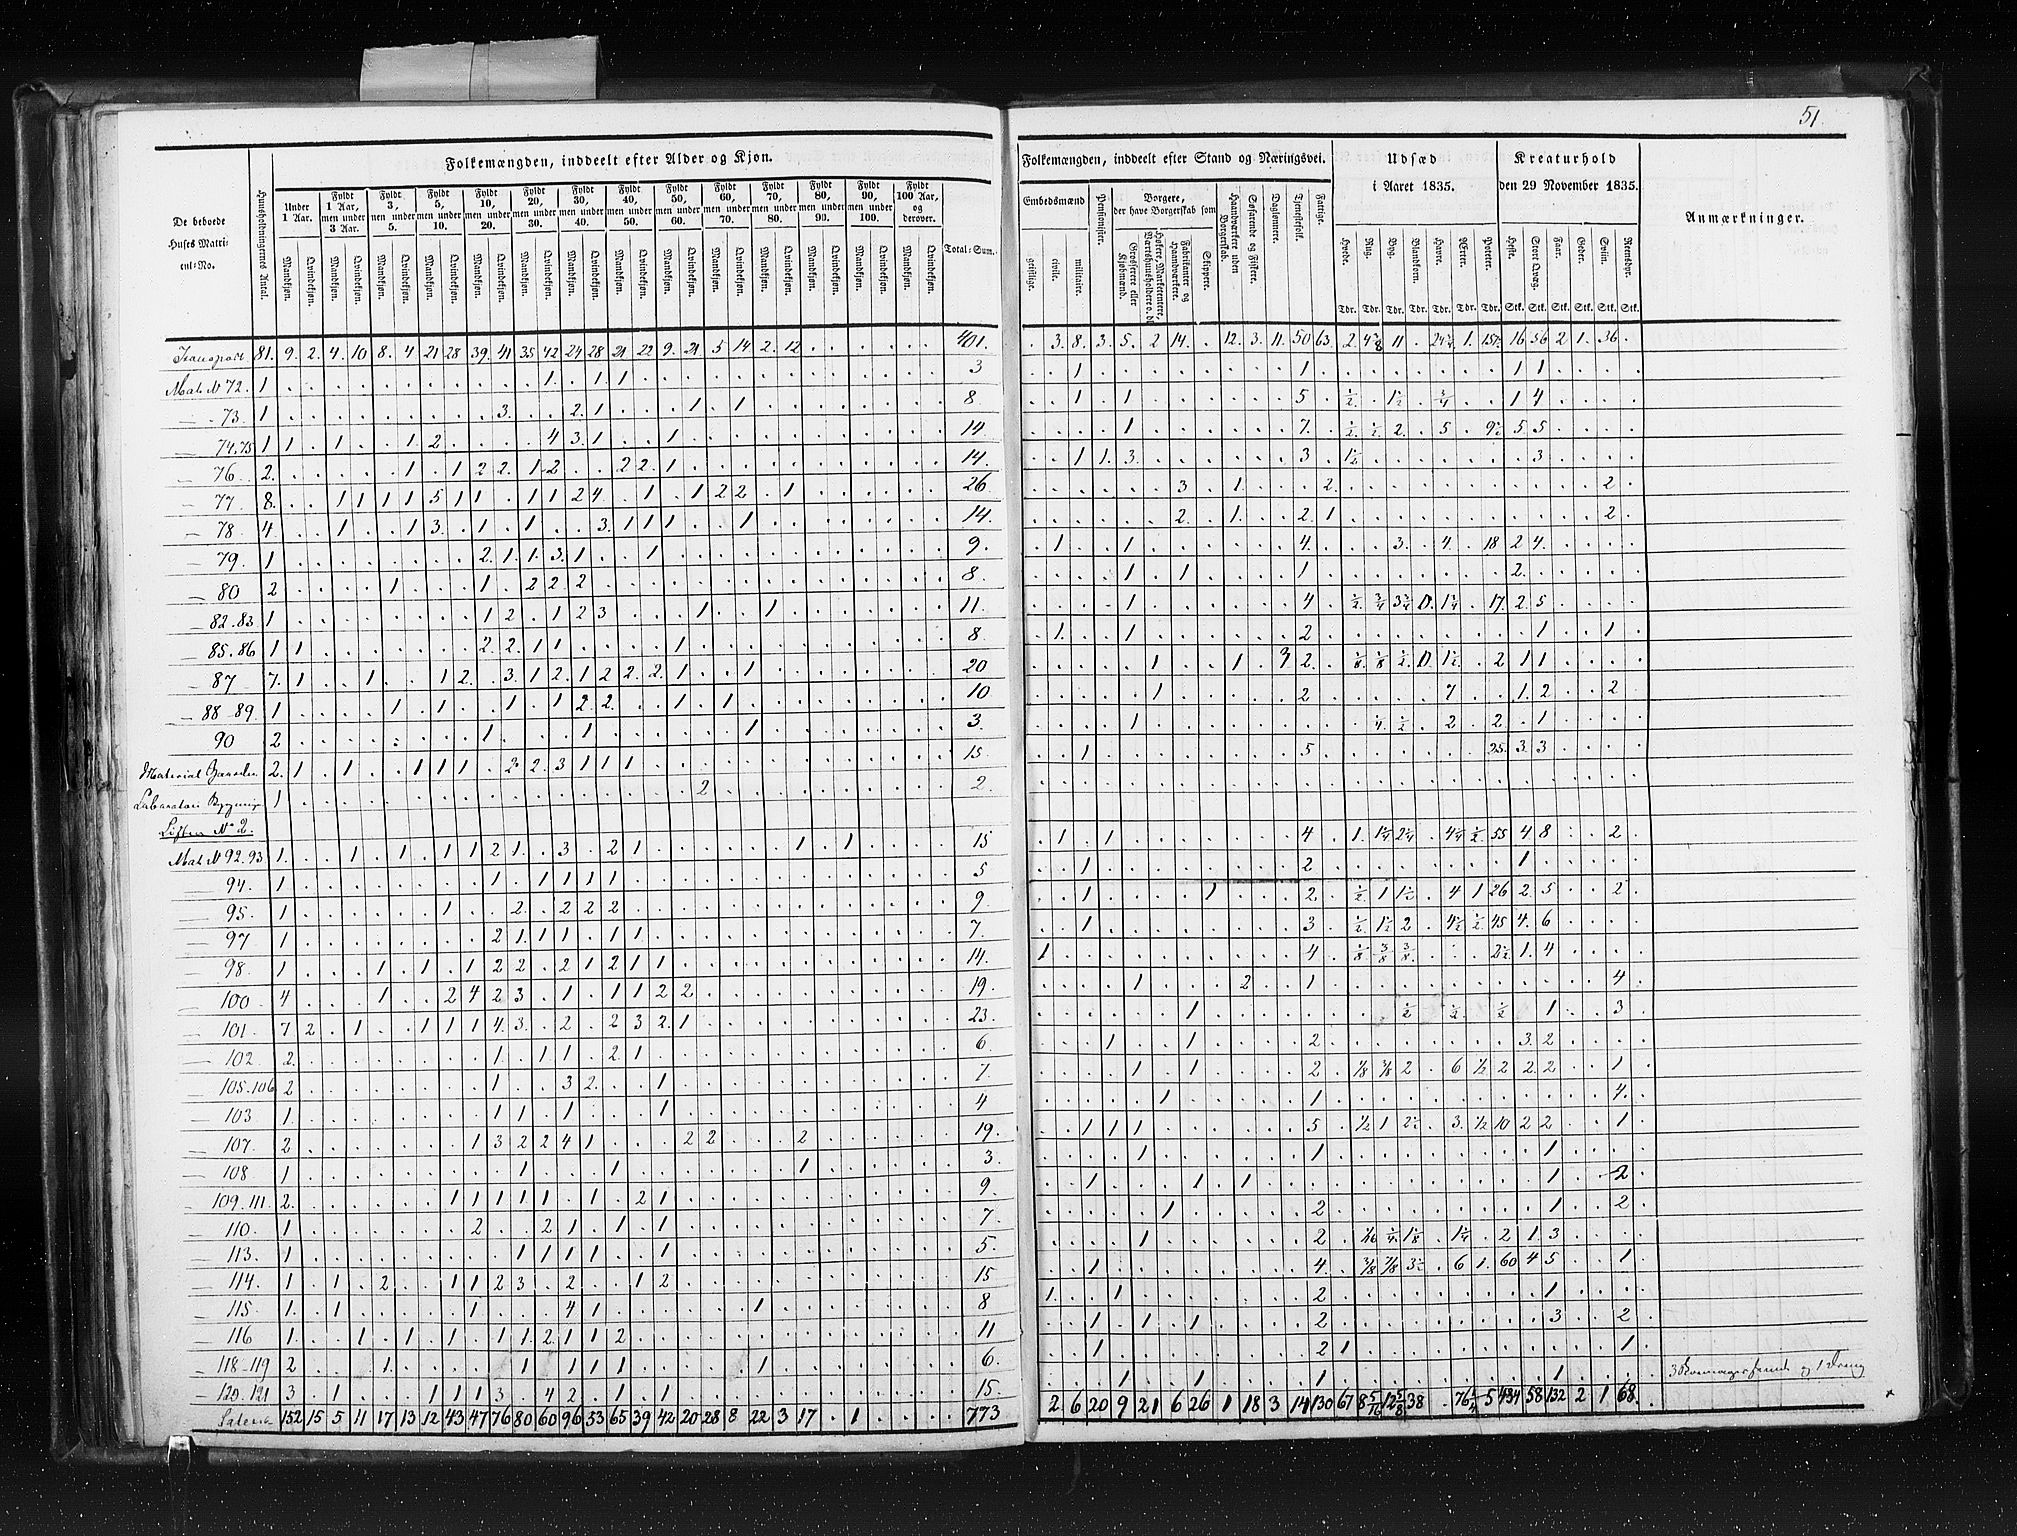 51.
Folkemængden, inddeelt efter Alder og Kjøn.
De beboede Huses Matricul-No.
Huusholdningernes Antal.
Under 1 Aar.
Fyldt 1 Aar, men under 3 Aar.
Fyldt 3, men under 5.
Fyldt 5, men under 10.
Fyldt 10, men under 20.
Fyldt 20, men under 30.
Fyldt 30, men under 40.
Fyldt 40, men under 50.
Fyldt 50, men under 60.
Fyldt 60, men under 70.
Fyldt 70, men under 80.
Fyldt 80, men under 90.
Fyldt 90, men under 100.
Fyldt 100 Aar, og derover.
Mandkjøn. Qvindekjøn.
Total-Sum.
Folkemængden, inddeelt efter Stand og Næringsvei.
Embedsmænd
geistlige. civile. militaire.
Pensionister.
Borgere, der have Borgerskab som
Grosserere eller Kjøbmænd.
Fabrikanter og Haandværkere.
Skippere.
Haandværkere uden Borgerskab.
Søfarende og Fiskere.
Daglønnere.
Tjenestefolk.
Fattige.
Udsæd i Aaret 1835.
Hvede. Rug. Byg. Blandkorn. Havre. Ærter. Poteter.
Tdr. Tdr. Tdr. Tdr. Tdr. Tdr. Tdr.
Kreaturhold den 29 November 1835.
Heste. Stort Qvæg. Faar. Geder. Sviin. Reensdyr.
Stk. Stk. Stk. Stk. Stk. Stk.
Anmærkninger.
Transport 81. 9. 2. 4. 10 8. 4 21 28 39. 41 35 42 24 28 21 22 9. 21 5 14 2. 12 401.
Mat. N 72. 1 1. 1. 1 3
73. 1 3. 2. 1 1. 1 8
74.75 1 1 1 1. 2 4 3. 1 1 14
76 2. 1 1 2 2. 1 2 2 2. 1 14.
77 8. 1 1 1 1 5 1 1 1 1 2 4 1 1 2 2 1 26
78 4. 1 1 3. 1 1 3. 1 1 1 1 14.
79. 1 2. 1 1. 3. 1 1 9.
80 2 1 1 2 2. 2 8.
82.83 1 1 2 1 2 3 1 1 11.
85.86 1 1 2. 2. 1 1 1 8.
87 7. 1 1 1 2. 3. 1 2. 1 2 2. 2. 1 1 20
88-89 1 1 1 1 1 2. 2. 1 1 10
90 2 1 1 1 3.
2. 1 1 1 1 1 2 2. 3 1 1 1 15
1 2 2.
N° 2.
Mat N 92.93 1. 1 1 1 1 2 1. 3 2 1 1 1 15
94. 1 1 1 1 1 1 5
95. 1 1 2. 2 2 2 9
97 1 2 1. 1 1 1 1 7.
98. 1 1 1 1 2 2. 2 1 2 1 1 14.
100 4 1 2 4 2 3 1 1 1 2 2 19.
101. 7 2 1 1 1 1 4. 3. 2 2 3 2. 1 23.
102 2. 1 1 1 2. 1 6
105.106 2 1 3 2. 1 7
103 1. 1 1 1 1 4
107. 2 1 3 2 2 4 1 2 2 2 19.
108 1 1 1 1 3.
109.111. 2. 1 1 1 1 1 1 2 1 9.
110. 1 2 2 1 1 1 7.
113. 1 1 1 1 1 1 5.
114. 1 1 2 1 1 2 3 2 1 2 15
115. 1. 1 1 4 1 1 8
116 1. 1 1 1 1 1 2 1 1 2 11
118-119 2 1. 1 1 1 1 1 6.
120.121 3 1 1 1 1 3 4 2 1 1 15.
Latera 152 15 5 11 17 13 12 43 47 76 80 60 96 53 65 39 42 20 28 8 22 3 17 1 773
3. 8. 3. 5. 2 14. 12. 3. 11. 50 63. 2 11 1. 16 56 2 1. 36.
1 1 1 1
1 1 5 ½ 1½ 1 4
1 7. ½ ½ 2. 5 9½ 5. 5
1 1. 3. 3 1½ 3
3 1. 2. 2
2. 1. 2. 1 2
1 1 4. 3. 4. 18 2 4.
1 1 1 2.
1 4 ½ ¾ 17. 2. 5
1. 1 2 1 1
1 1 2. ⅛ ⅛ ½ 2 1 1
1 2 7 1. 2 2
1 ½ 2 2 1
1 5 25. 3. 3
1 1 4 1. ½ 55 4 8 2
1 2 1
1 1 2. ½ 1 1½ 4 1 26 2. 5 2
1 3 ½ 1½ 2 4½ ½ 45 4. 6
1 4 ⅛ ⅜ ⅜ 2½ 1. 4
1 2 1 4
1 ½ ½ ½ 1 3
1 1 2 3. 2
1 1 2 ⅛ ⅜ 2 6 ½ 2 2 2 1
1 1 4.
1 1 1 5 ½ 1 3. ½ 10 2 2 1
1 1 1
1 1 1 1 2
1 2 1 2
1 2 2 1. 3
1 4. 6 1. 60 4 5 1
1. 1 2 1
1 1 1 2 3 2
1 2 1 1
1 1 1 1
3 og 1 Dreng
2 6 20 9 21 6 26 1 18 3 14 130 67 38 5 434 58 132 2 1 68.